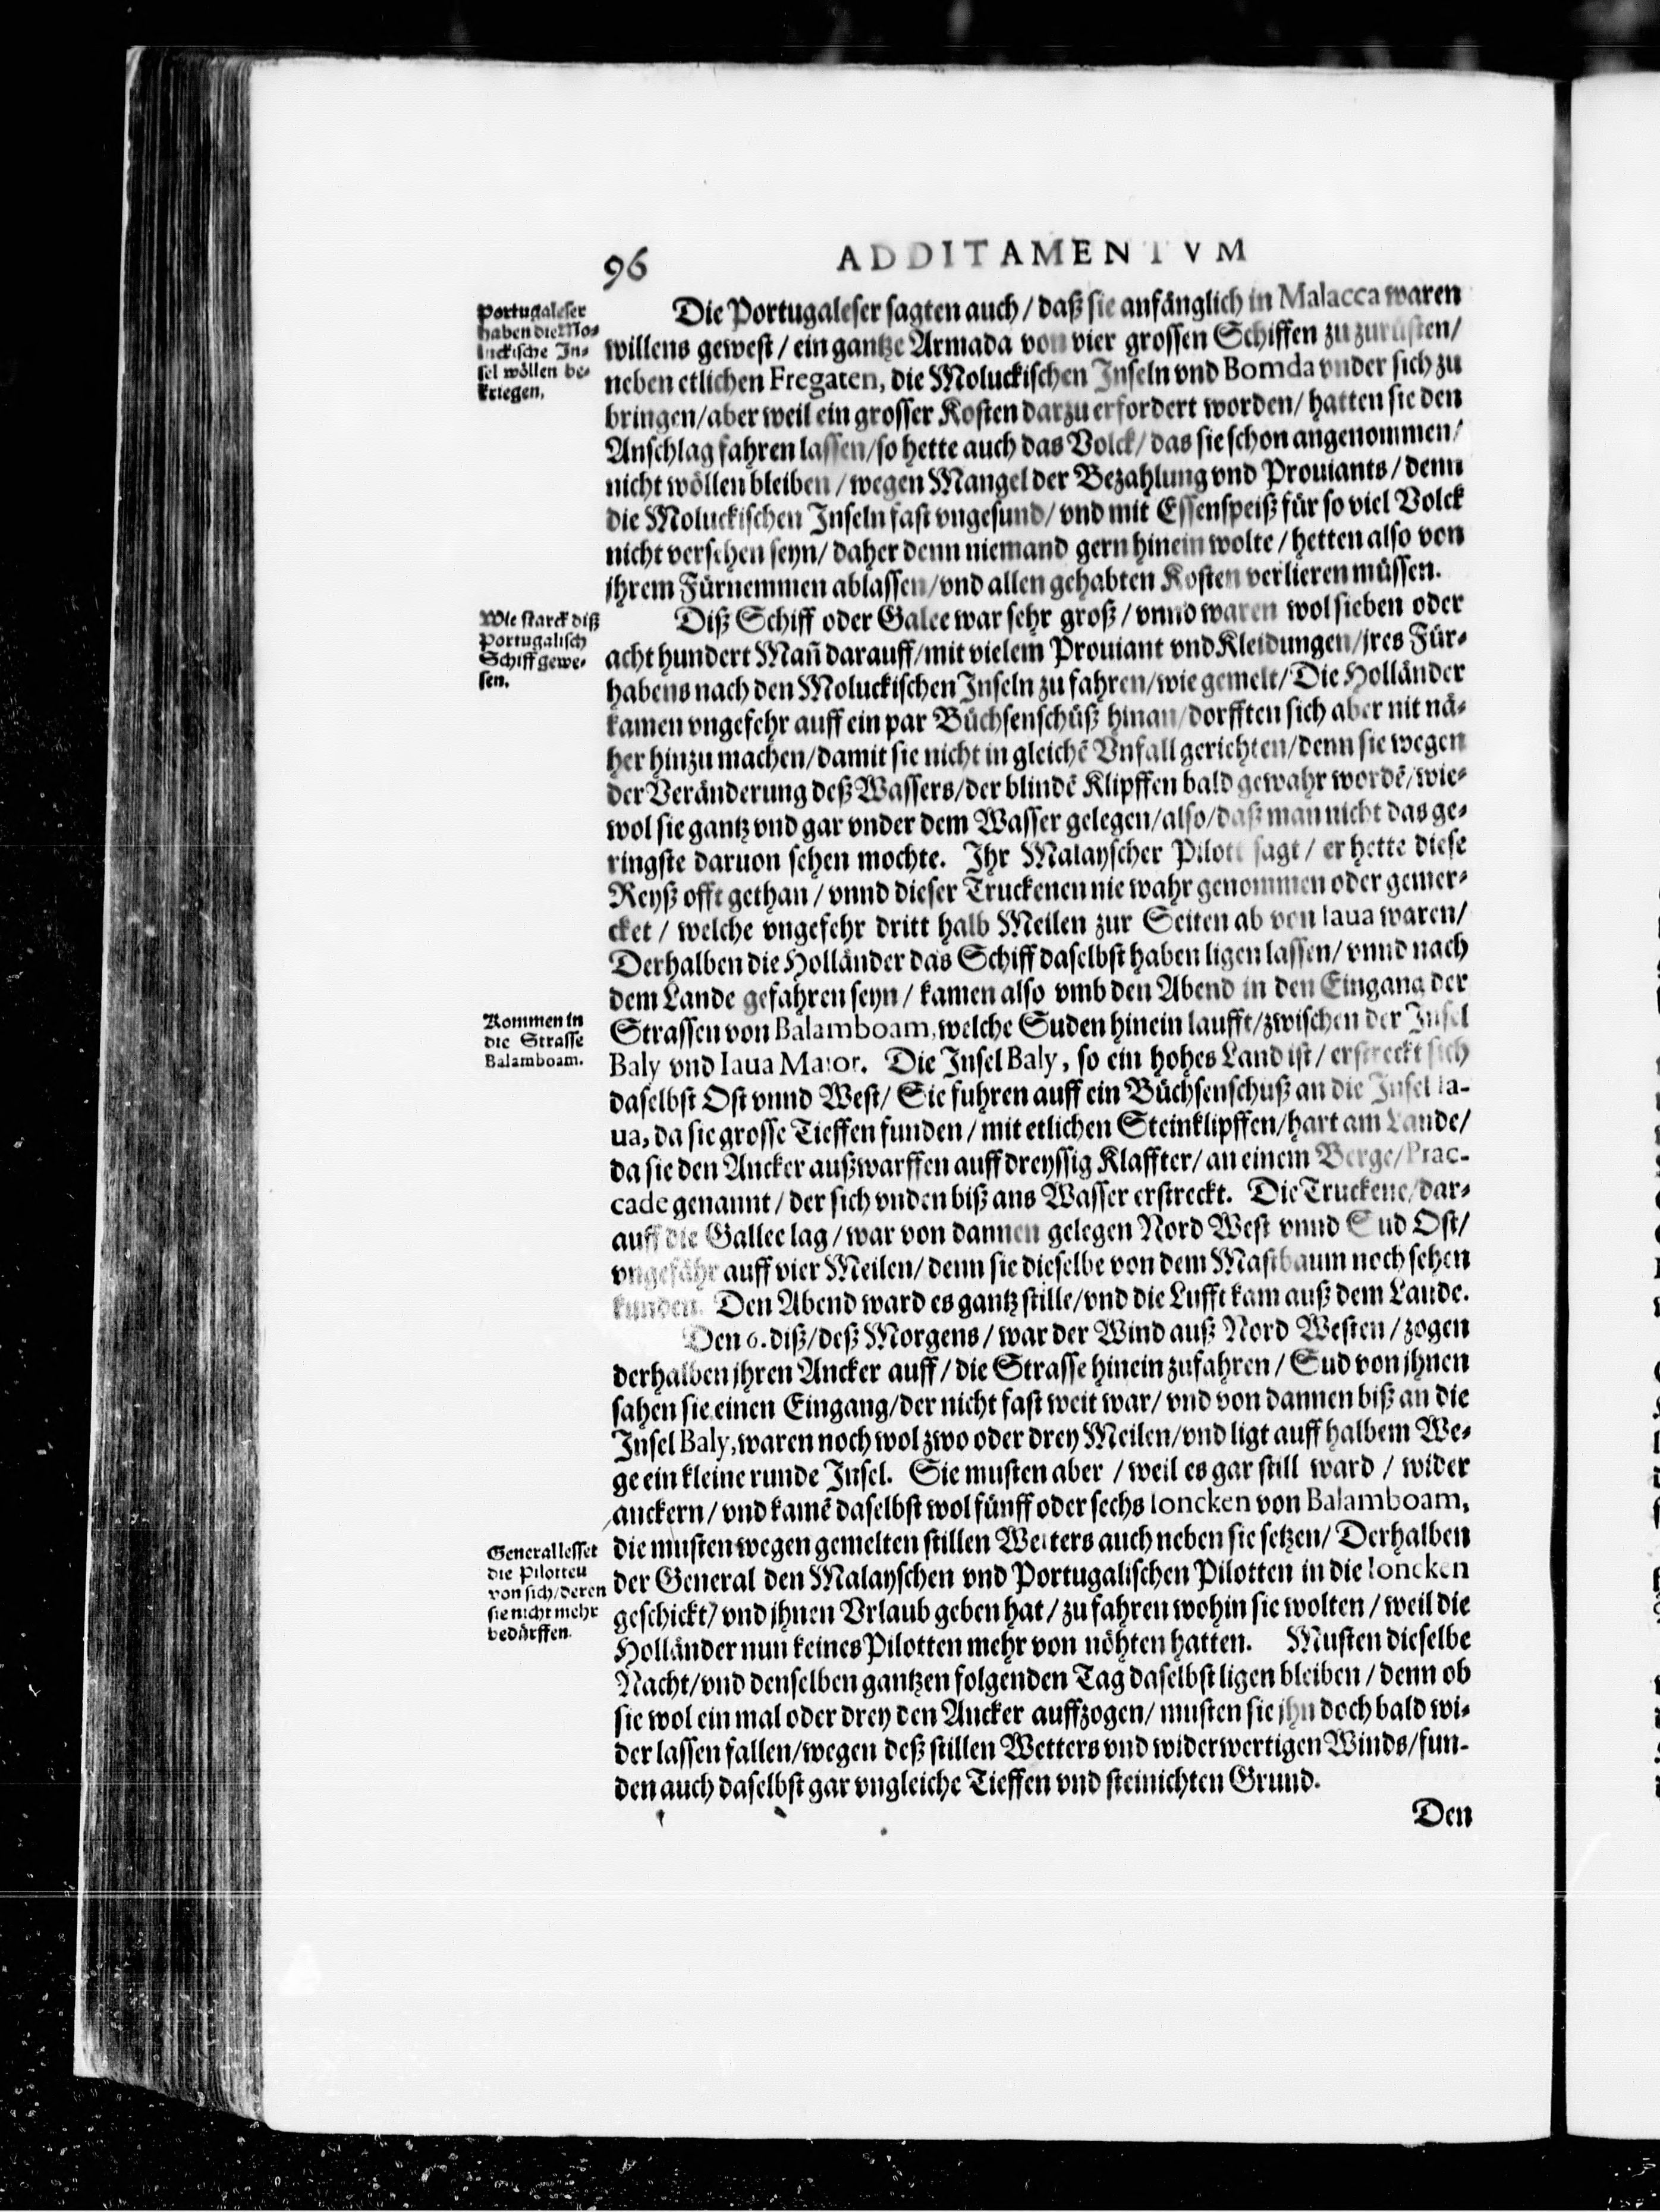 96
ADDITAMENTVM
Portugaleser
haben die Mo-
luckische In-
sel wöllen be-
kriegen.
Die Portugaleser sagten auch / daß sie anfänglich in Malacca waren
willens gewest / ein gantze Armada von vier grossen Schiffen zu zurüsten/
neben etlichen Fregaten, die Moluckischen Inseln vnd Bomda vnder sich zu
bringen/aber weil ein grosser Kosten darzu erfordert worden/ hatten sie den
Anschlag fahren lassen/so hette auch das Volck/ das sie schon angenommen/
nicht wöllen bleiben / wegen Mangel der Bezahlung vnd Prouiants / denn
die Moluckischen Inseln fast vngesund/ vnd mit Essenspeiß für so viel Volck
nicht versehen seyn/ daher denn niemand gern hinein wolte / hetten also von
jhrem Fürnemmen ablassen/vnd allen gehabten Kosten verlieren müssen.
Wie starck diß
Portugalisch
Schiff gewe-
sen.
Diß Schiff oder Galee war sehr groß / vnnd waren wol sieben oder
acht hundert Mañ darauff/mit vielem Prouiant vnd Kleidungen/jres Für-
habens nach den Moluckischen Inseln zu fahren/wie gemelt/Die Holländer
kamen vngefehr auff ein par Büchsenschüß hinan/dorfften sich aber nit nä-
her hinzu machen/damit sie nicht in gleichē Vnfall gerichten/denn sie wegen
der Veränderung deß Wassers/der blindē Klipffen bald gewahr wordē/wie-
wol sie gantz vnd gar vnder dem Wasser gelegen/also/daß man nicht das ge-
ringste daruon sehen mochte. Ihr Malayscher Pilott sagt / er hette diese
Reyß offt gethan / vnnd dieser Truckenen nie wahr genommen oder gemer-
cket / welche vngefehr dritt halb Meilen zur Seiten ab von Iaua waren/
Derhalben die Holländer das Schiff daselbst haben ligen lassen/ vnnd nach
dem Lande gefahren seyn / kamen also vmb den Abend in den Eingang der
Kommen in
die Strasse
Balamboam.
Strassen von Balamboam, welche Suden hinein laufft/zwischen der Insel
Baly vnd Iaua Maior. Die Insel Baly, so ein hohes Land ist / erstreckt sich
daselbst Ost vnnd West/ Sie fuhren auff ein Büchsenschuß an die Insel Ia-
ua, da sie grosse Tieffen funden / mit etlichen Steinklipffen/hart am Lande/
da sie den Ancker außwarffen auff dreyssig Klaffter/ an einem Berge/Prac-
cade genannt / der sich vnden biß ans Wasser erstreckt. Die Truckene/dar-
auff die Gallee lag / war von dannen gelegen Nord West vnnd Sud Ost/
vngefähr auff vier Meilen/ denn sie dieselbe von dem Mastbaum noch sehen
kunden. Den Abend ward es gantz stille/vnd die Lufft kam auß dem Lande.
Den 6. diß/deß Morgens/ war der Wind auß Nord Westen / zogen
derhalben jhren Ancker auff / die Strasse hinein zufahren / Sud von jhnen
sahen sie einen Eingang/der nicht fast weit war/ vnd von dannen biß an die
Insel Baly, waren noch wol zwo oder drey Meilen/vnd ligt auff halbem We-
ge ein kleine runde Insel. Sie musten aber / weil es gar still ward / wider
anckern / vnd kamē daselbst wol fünff oder sechs Ioncken von Balamboam,
General lesset
die Pilotten
von sich/deren
sie nicht mehr
bedürffen.
die musten wegen gemelten stillen Wetters auch neben sie setzen/ Derhalben
der General den Malayschen vnd Portugalischen Pilotten in die Ioncken
geschickt/ vnd jhnen Vrlaub geben hat / zu fahren wohin sie wolten / weil die
Holländer nun keines Pilotten mehr von nöhten hatten. Musten dieselbe
Nacht/vnd denselben gantzen folgenden Tag daselbst ligen bleiben / denn ob
sie wol ein mal oder drey den Ancker auffzogen/ musten sie jhn doch bald wi-
der lassen fallen/wegen deß stillen Wetters vnd widerwertigen Winds/fun-
den auch daselbst gar vngleiche Tieffen vnd steinichten Grund.
Den